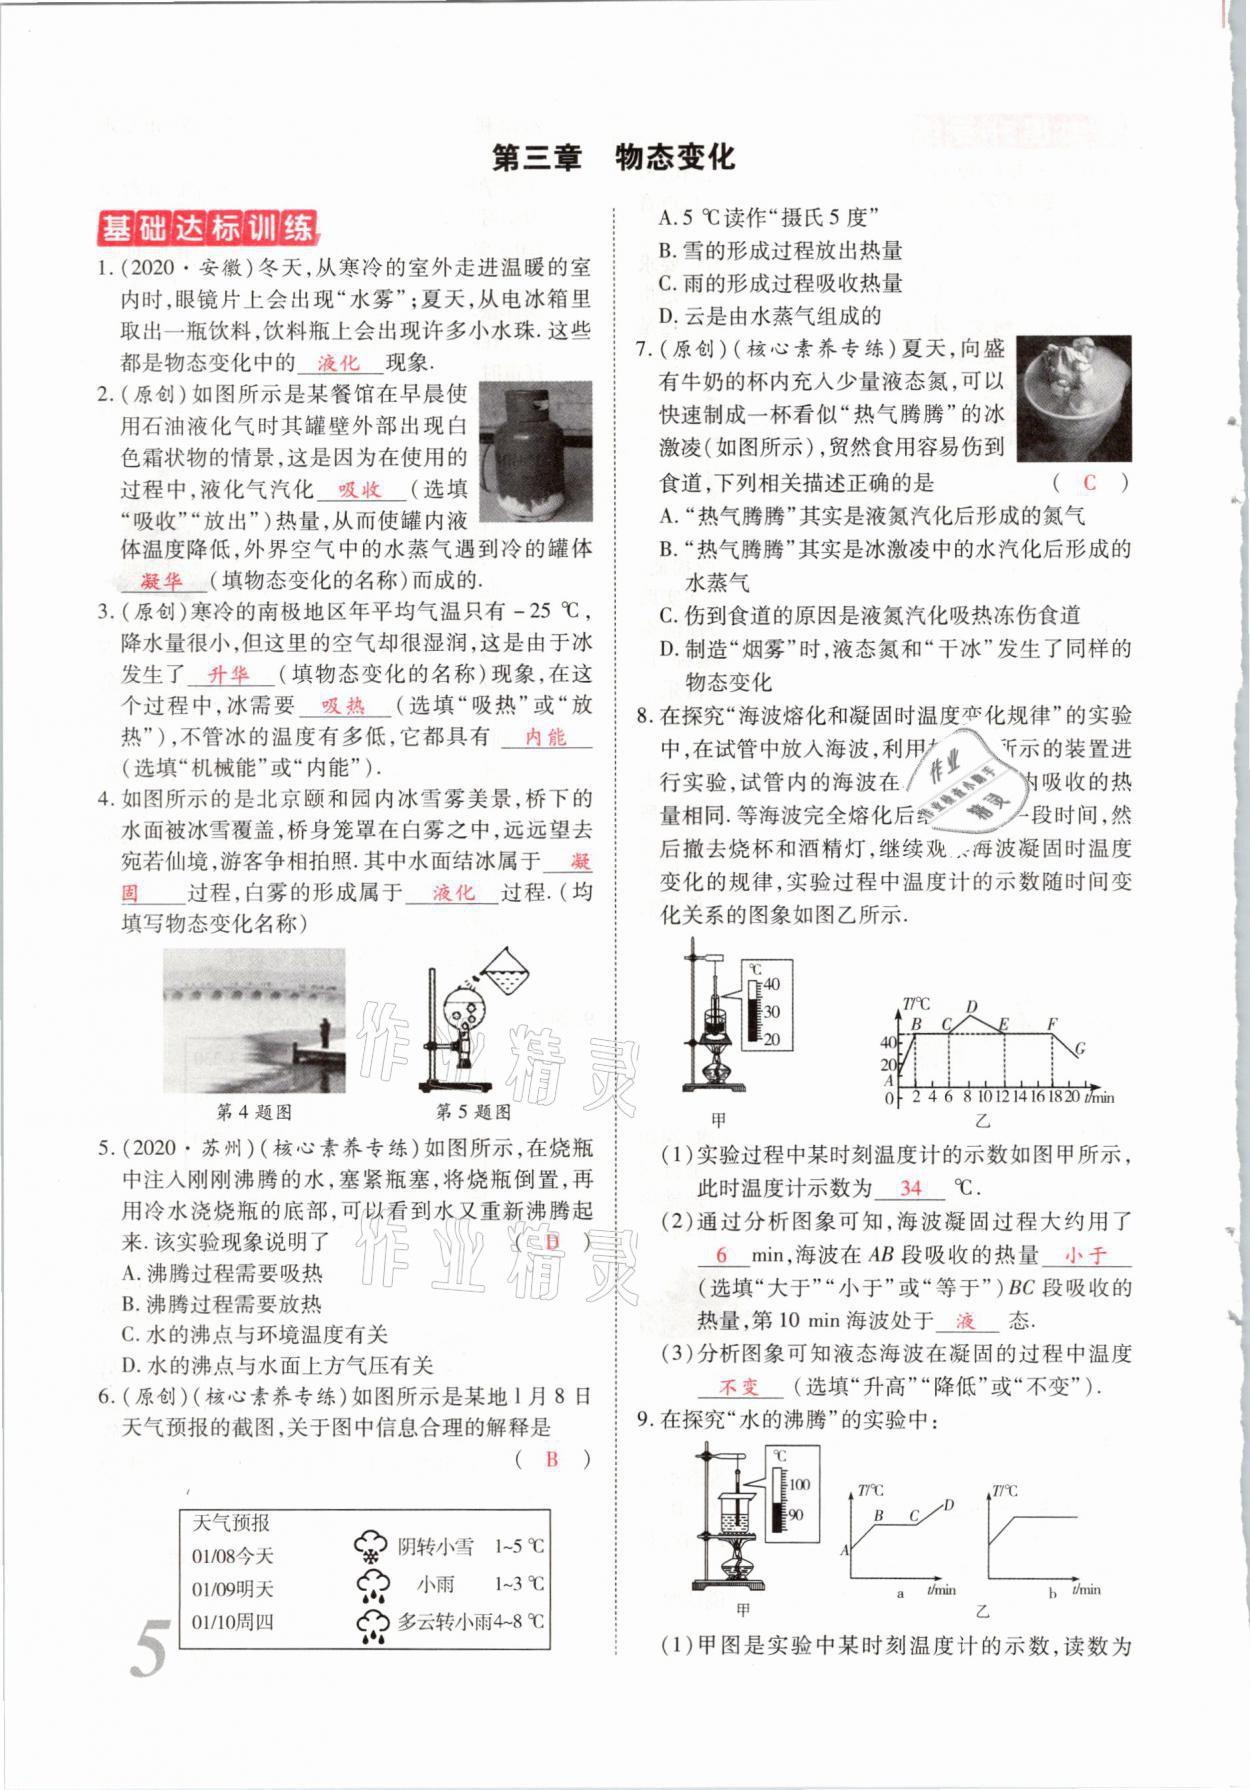 第三章 物态变化
基础达标训练
1. (2020·安徽)冬天,从寒冷的室外走进温暖的室
内时,眼镜片上会出现“水雾”;夏天,从电冰箱里
取出一瓶饮料,饮料瓶上会出现许多小水珠.这些
都是物态变化中的 液化 现象.
2. (原创)如图所示是某餐馆在早晨使
用石油液化气时其罐壁外部出现白
色霜状物的情景,这是因为在使用的
过程中,液化气汽化 吸收 (选填
“吸收”“放出”)热量,从而使罐内液
体温度降低,外界空气中的水蒸气遇到冷的罐体
凝华 (填物态变化的名称)而成的.
3. (原创)寒冷的南极地区年平均气温只有-25 ℃,
降水量很小,但这里的空气却很湿润,这是由于冰
发生了 升华 (填物态变化的名称)现象,在这
个过程中,冰需要 吸热 (选填“吸热”或“放
热”),不管冰的温度有多低,它都具有 内能
(选填“机械能”或“内能”).
4. 如图所示的是北京颐和园内冰雪雾美景,桥下的
水面被冰雪覆盖,桥身笼罩在白雾之中,远远望去
宛若仙境,游客争相拍照.其中水面结冰属于 凝
固 过程,白雾的形成属于 液化 过程.(均
填写物态变化名称)
第4题图 第5题图
5. (2020·苏州)(核心素养专练)如图所示,在烧瓶
中注入刚刚沸腾的水,塞紧瓶塞,将烧瓶倒置,再
用冷水浇烧瓶的底部,可以看到水又重新沸腾起
来.该实验现象说明了 ( D )
A. 沸腾过程需要吸热
B. 沸腾过程需要放热
C. 水的沸点与环境温度有关
D. 水的沸点与水面上方气压有关
6. (原创)(核心素养专练)如图所示是某地1月8日
天气预报的截图,关于图中信息合理的解释是
( B )
天气预报
01/08今天 阴转小雪 1~5 ℃
01/09明天 小雨 1~3 ℃
01/10周四 多云转小雨4~8 ℃
5
A. 5 ℃读作“摄氏5度”
B. 雪的形成过程放出热量
C. 雨的形成过程吸收热量
D. 云是由水蒸气组成的
7. (原创)(核心素养专练)夏天,向盛
有牛奶的杯内充入少量液态氮,可以
快速制成一杯看似“热气腾腾”的冰
激凌(如图所示),贸然食用容易伤到
食道,下列相关描述正确的是 ( C )
A. “热气腾腾”其实是液氮汽化后形成的氮气
B. “热气腾腾”其实是冰激凌中的水汽化后形成的
水蒸气
C. 伤到食道的原因是液氮汽化吸热冻伤食道
D. 制造“烟雾”时,液态氮和“干冰”发生了同样的
物态变化
8. 在探究“海波熔化和凝固时温度变化规律”的实验
中,在试管中放入海波,利用 所示的装置进
行实验,试管内的海波在 内吸收的热
量相同.等海波完全熔化后 一段时间,然
后撤去烧杯和酒精灯,继续观 海波凝固时温度
变化的规律,实验过程中温度计的示数随时间变
化关系的图象如图乙所示.
℃ 40 30 20
甲
T/℃ 40 20 0 A B C D E F G
2 4 6 8 10 12 14 16 18 20 t/min
乙
(1)实验过程中某时刻温度计的示数如图甲所示,
此时温度计示数为 34 ℃.
(2)通过分析图象可知,海波凝固过程大约用了
6 min,海波在AB段吸收的热量 小于
(选填“大于”“小于”或“等于”)BC段吸收的
热量,第10 min海波处于 液 态.
(3)分析图象可知液态海波在凝固的过程中温度
不变 (选填“升高”“降低”或“不变”).
9. 在探究“水的沸腾”的实验中:
℃ 100 90
甲
T/℃ A B C D t/min a
T/℃ t/min b
乙
(1)甲图是实验中某时刻温度计的示数,读数为
作业精灵
作业精灵
作业
作业检查小助手
精灵